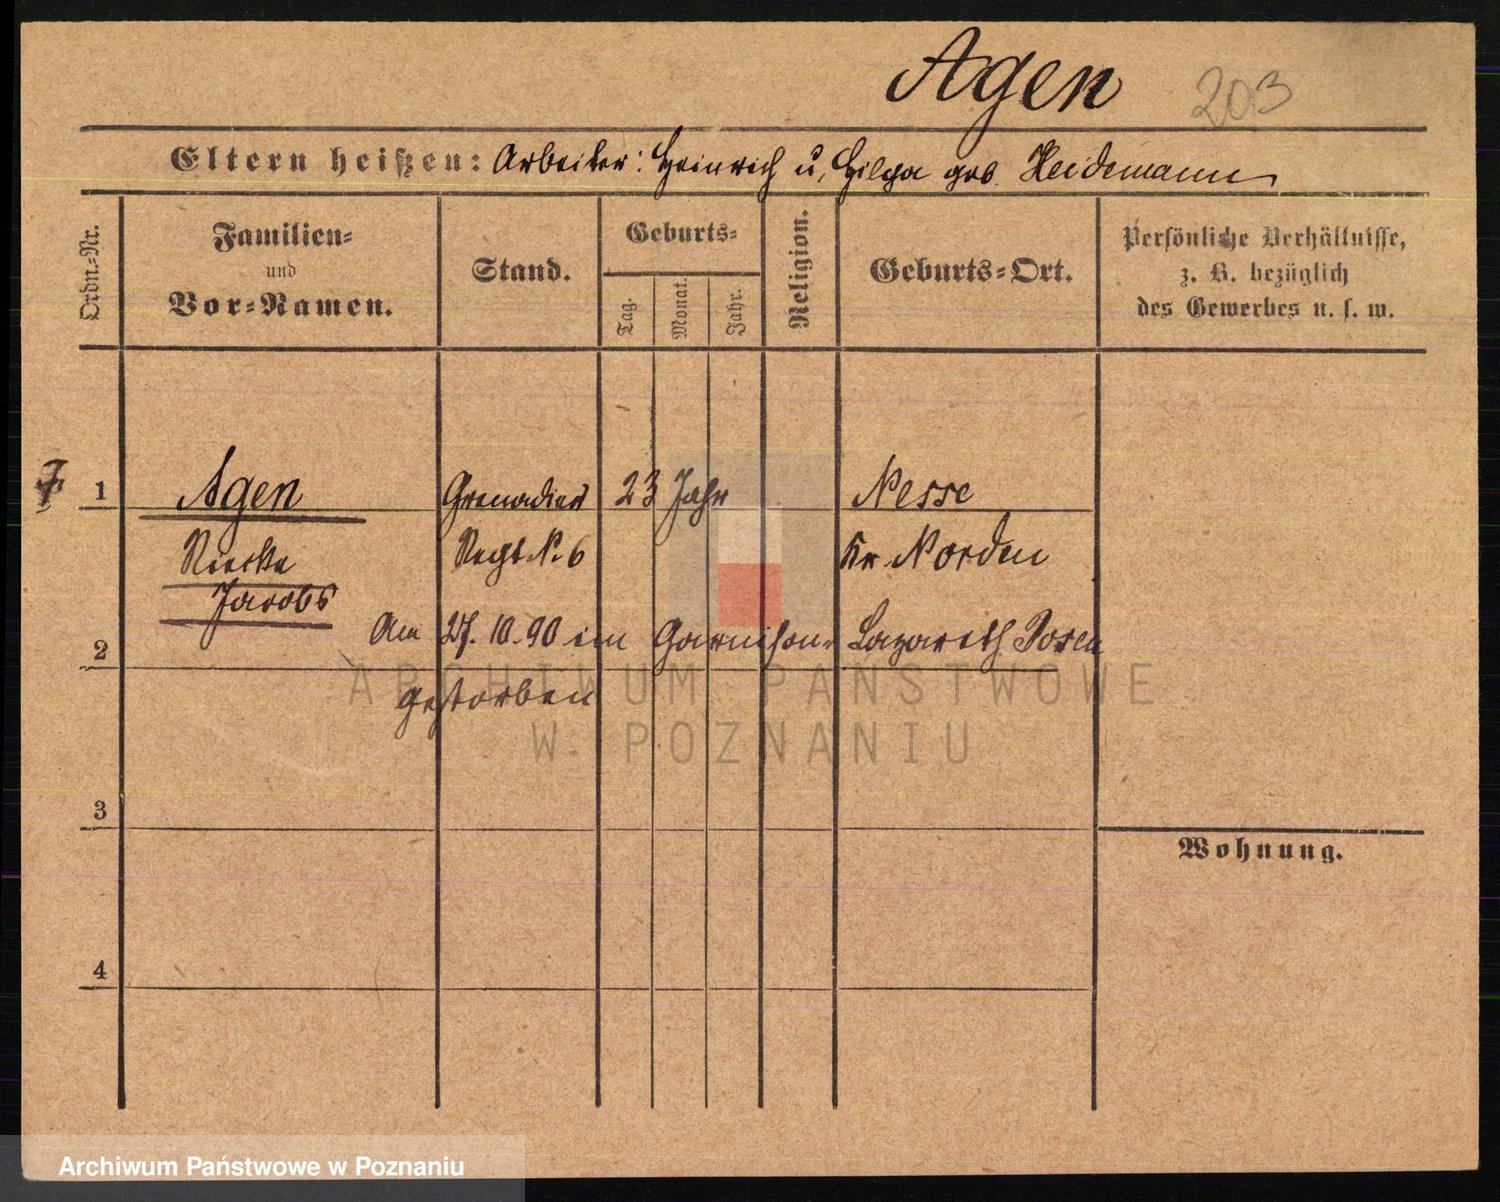 Agen 203
Eltern heißen: Arbeiter: Heinrich u. Hilga geb. Heidemann
Ordn.-Nr.
Familien-
und
Vor-Namen.
Stand.
Geburts-
Tag.
Monat.
Jahr.
Religion.
Geburts-Ort.
Persönliche Verhältnisse,
z. B. bezüglich
des Gewerbes u. s. w.
1 Agen Grenadier 23 Jahr Nesse
Regt N. 6 Kr. Norden
Jacobs
2 Am 27. 10. 90 im Garnison- Lazareth Posen
gestorben
3
Wohnung.
4
ARCHIWUM PAŃSTWOWE
W POZNANIU
Archiwum Państwowe w Poznaniu